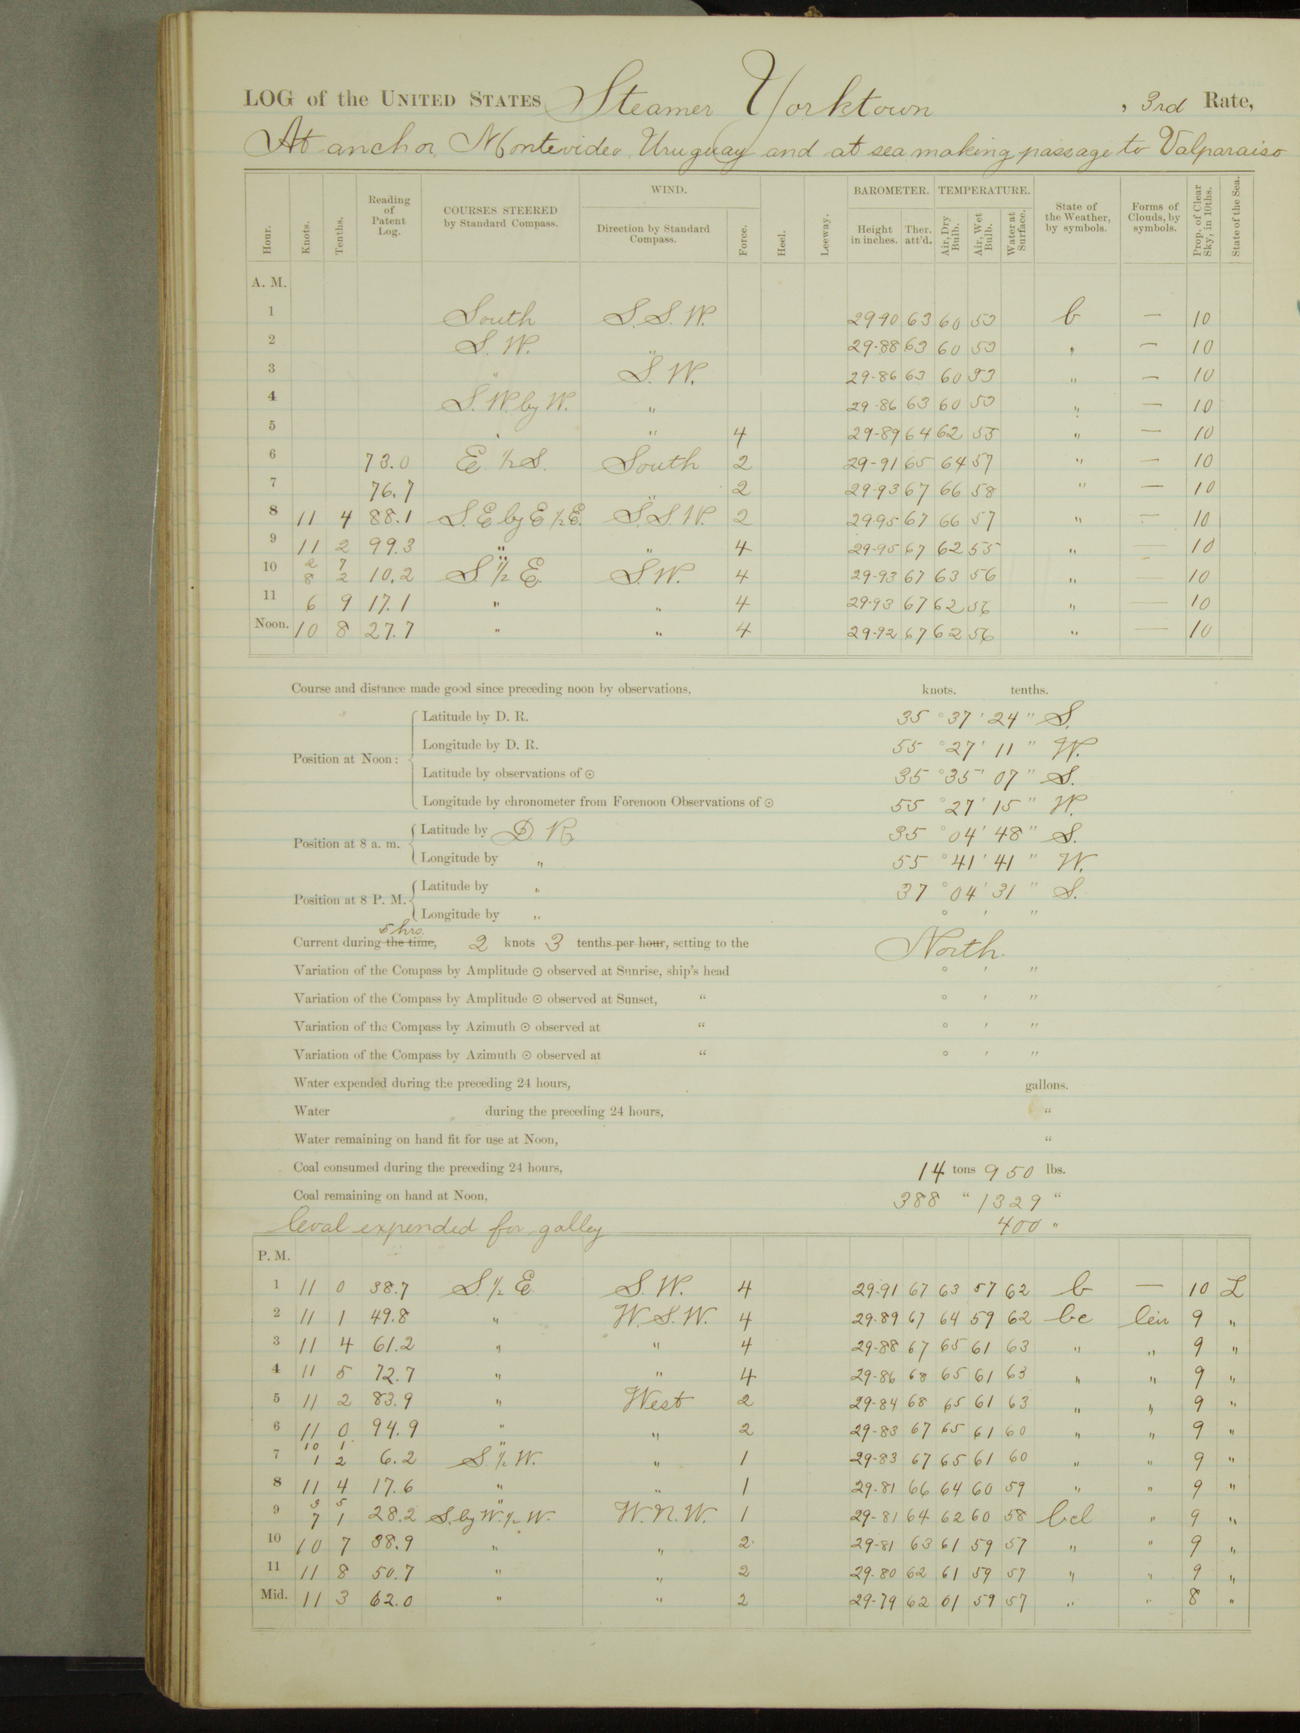 LOG of the UNITED STATES Steamer Yorktown, 3rd Rate,
At anchor, Montevideo, Uruguay and at sea making passage to Valparaiso
Hour. Knots. Tenths. Reading of Patent Log. COURSES STEERED by Standard Compass. WIND. Direction by Standard Compass. Force. Heel. Leeway. BAROMETER. Height in inches. Ther. att'd. TEMPERATURE. Air, Dry Bulb. Air, Wet Bulb. Water at Surface. State of the Weather, by symbols. Forms of Clouds, by symbols. Prop. of Clear Sky, in 10ths. State of the Sea.
A. M.
1 South S.S.W. 29-90 63 60 53 b — 10
2 S.W. " 29-88 63 60 53 " — 10
3 " S.W. 29-86 63 60 53 " — 10
4 S.W. by W. " 29-86 63 60 53 " — 10
5 " " 4 29-89 64 62 55 " — 10
6 73.0 E 1/2 S. South 2 29-91 65 64 57 " — 10
7 76.7 " 2 29-93 67 66 58 " — 10
8 11 4 88.1 S.E by E 1/2 E. S.S.W. 2 29-95 67 66 57 " — 10
9 11 2 99.3 " " 4 29-95 67 62 55 " — 10
10 2 7 8 2 10.2 " S 1/2 E. S.W. 4 29-93 67 63 56 " — 10
11 6 9 17.1 " " 4 29-93 67 62 56 " — 10
Noon. 10 8 27.7 " " 4 29-92 67 62 56 " — 10
Course and distance made good since preceding noon by observations, knots. tenths.
Position at Noon: Latitude by D. R. 35 ° 37 ' 24 " S.
Longitude by D. R. 55 ° 27 ' 11 " W.
Latitude by observations of ⊙ 35 ° 35 ' 07 " S.
Longitude by chronometer from Forenoon Observations of ⊙ 55 ° 27 ' 15 " W.
Position at 8 a. m. Latitude by D R. 35 ° 04 ' 48 " S.
Longitude by " 55 ° 41 ' 41 " W.
Position at 8 P. M. Latitude by " 37 ° 04 ' 31 " S.
Longitude by " ° ' "
5 hrs.
Current during the time, 2 knots 3 tenths per hour, setting to the North.
Variation of the Compass by Amplitude ⊙ observed at Sunrise, ship's head ° ' "
Variation of the Compass by Amplitude ⊙ observed at Sunset, " ° ' "
Variation of the Compass by Azimuth ⊙ observed at " ° ' "
Variation of the Compass by Azimuth ⊙ observed at " ° ' "
Water expended during the preceding 24 hours, gallons.
Water during the preceding 24 hours, "
Water remaining on hand fit for use at Noon, "
Coal consumed during the preceding 24 hours, 14 tons 950 lbs.
Coal remaining on hand at Noon, 388 " 1329 "
Coal expended for galley 400 "
P. M.
1 11 0 38.7 S 1/2 E S.W. 4 29-91 67 63 57 62 b — 10 L
2 11 1 49.8 " W.S.W. 4 29-89 67 64 59 62 bc Cir 9 "
3 11 4 61.2 " " 4 29-88 67 65 61 63 " " 9 "
4 11 5 72.7 " " 4 29-86 68 65 61 63 " " 9 "
5 11 2 83.9 " West 2 29-84 68 65 61 63 " " 9 "
6 11 0 94.9 " " 2 29-83 67 65 61 60 " " 9 "
7 10 1 1 2 6.2 " S 1/2 W. " 1 29-83 67 65 61 60 " " 9 "
8 11 4 17.6 " " 1 29-81 66 64 60 59 " " 9 "
9 3 5 7 1 28.2 " S. by W. 1/2 W. W.N.W. 1 29-81 64 62 60 58 bcl " 9 "
10 10 7 38.9 " " 2 29-81 63 61 59 57 " " 9 "
11 11 8 50.7 " " 2 29-80 62 61 59 57 " " 9 "
Mid. 11 3 62.0 " " 2 29-79 62 61 59 57 " " 8 "